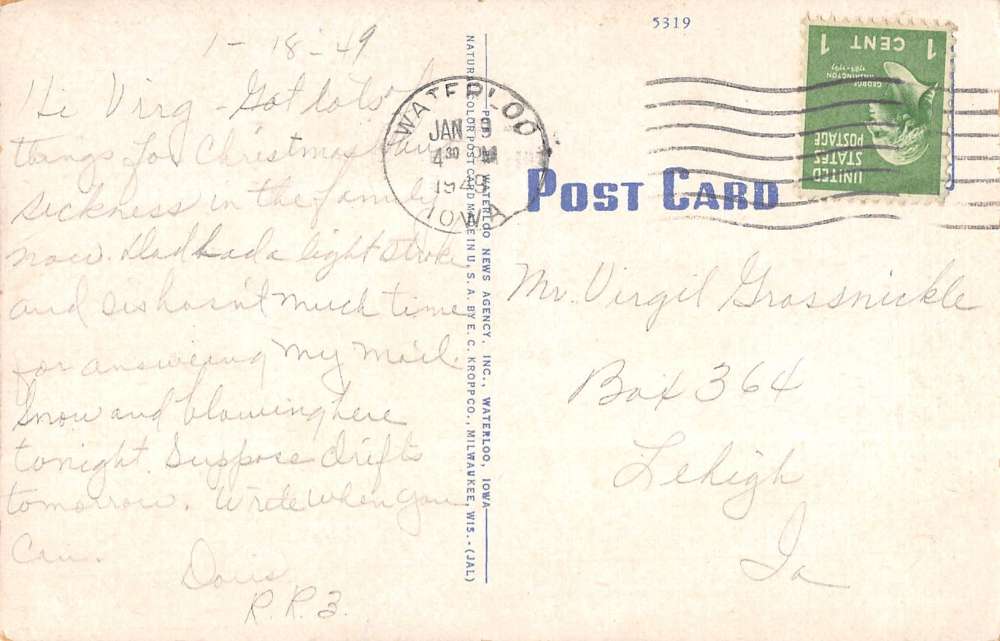 1-18-49
Hi Virg - Got lots of
things for Christmas. Have
sickness in the family
now. Dad had a light stroke
and sis hasn't much time
for answering my mail.
Snow and blowing here
tonight. Suppose drifts
tomorrow. Write when you
can.
Doris
R.R.3.
NATURAL COLOR POST CARD MADE IN U.S.A. BY E. C. KROPP CO., MILWAUKEE, WIS. - (JAL)
PUB. BY WATERLOO NEWS AGENCY, INC., WATERLOO, IOWA
5319
WATERLOO
JAN
4 30 PM
IOWA
1 CENT 1
GEORGE
WASHINGTON
UNITED
STATES
POSTAGE
POST CARD
Mr. Virgil Grossnickle
Box 364
Lehigh
Ia